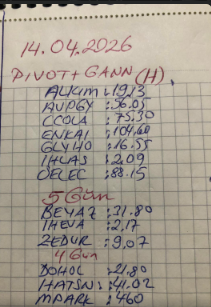 14.04.2026
PIVOT+GANN(H)
ALKIM:19,13
AVPGY:56.05
CCOLA:75.30
ENKAI:104.60
GLYHO:16.55
IHLAS:2.09
OELEC:88.15
5 Gün
BEYAZ:31.80
IHEVA:2,17
ZEDUR:9,07
4 Gün
DOHOL:21.80
HATSN:41.02
MPARK:460